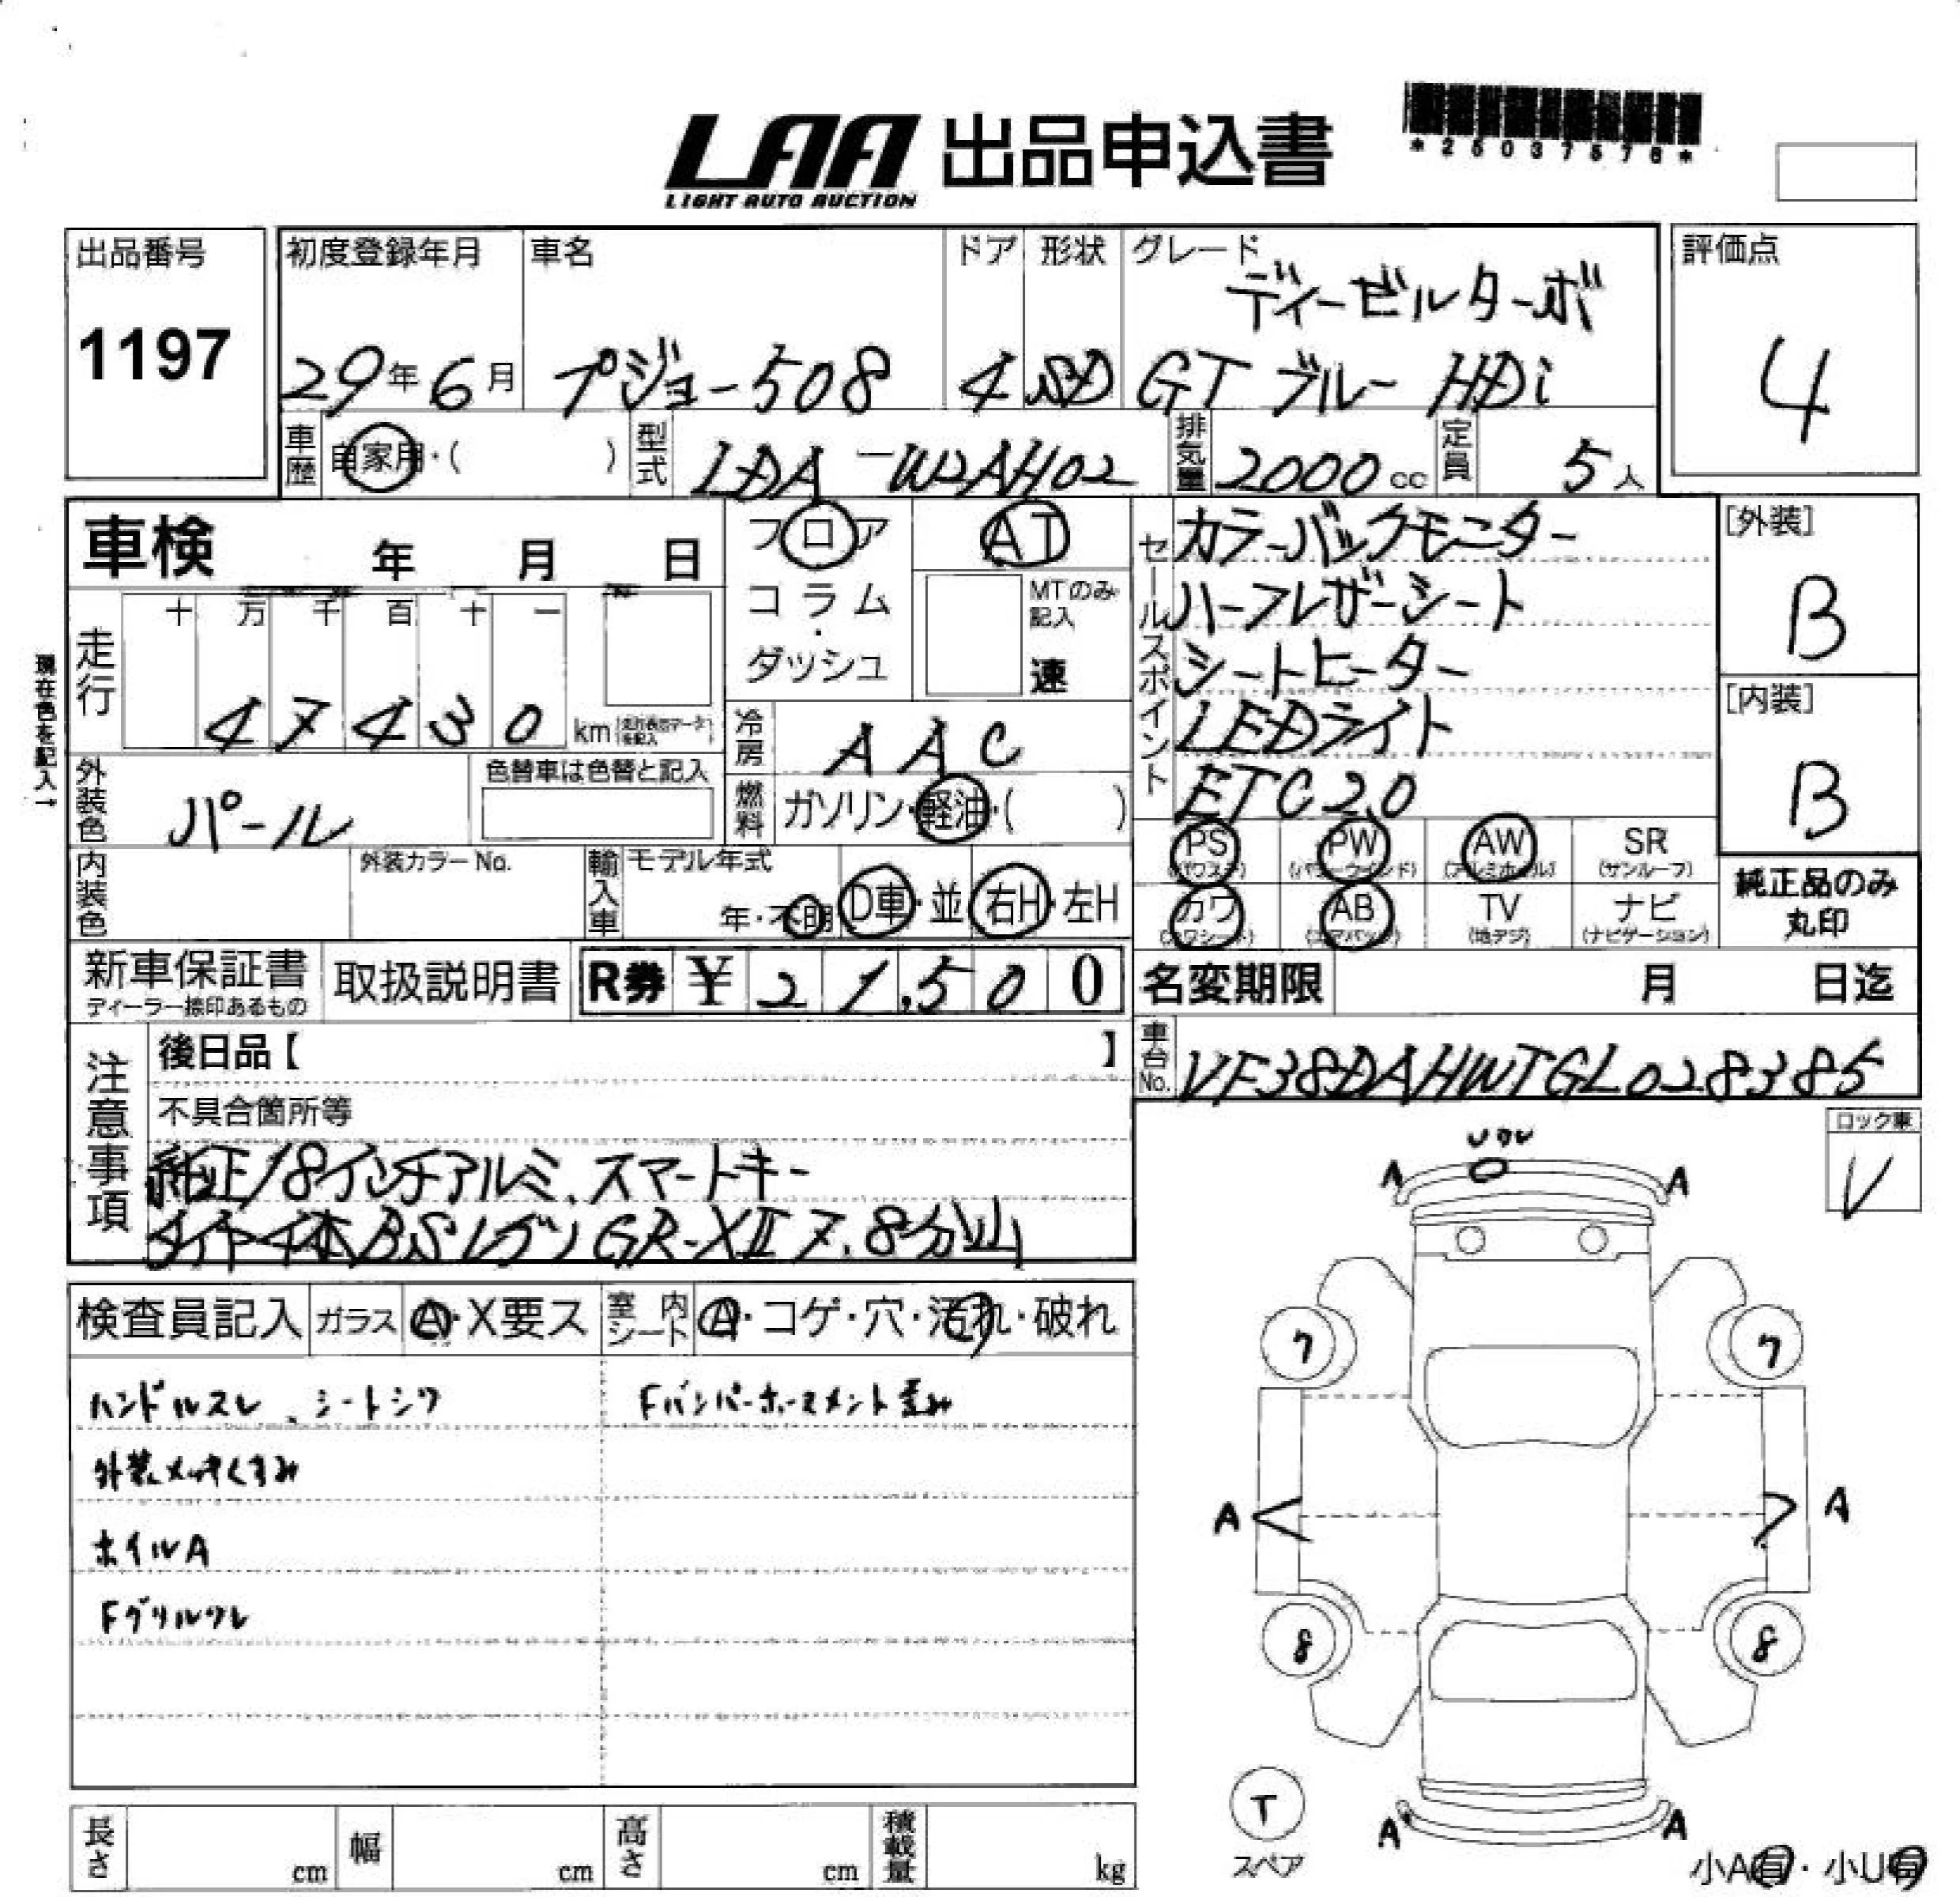 LAA 出品申込書
LIGHT AUTO AUCTION
*25037576*
出品番号
1197
初度登録年月
29年6月
車名
プジョー508
ドア
4
形状
SD
グレード
ディーゼルターボ
GTブルーHDi
評価点
4
車歴 自家用・( )
型式 LDA-W2AH02
排気量 2000cc
定員 5人
車検 年 月 日
フロア
コラム
・
ダッシュ
AT
MTのみ記入
速
現在色を記入→
走行 十 万 千 百 十 一
47430 km
冷房 AAC
外装色 パール
色替車は色替と記入
燃料 ガソリン・軽油・( )
内装色
外装カラーNo.
輸入車 モデル年式
年・不明 D車・並 右H・左H
セールスポイント
カラーバックモニター
ハーフレザーシート
シートヒーター
LEDライト
ETC2.0
PS
(パワステ)
PW
(パワーウインド)
AW
(アルミホイル)
SR
(サンルーフ)
カワ
(カワシート)
AB
(エアバック)
TV
(地デジ)
ナビ
(ナビゲーション)
[外装]
B
[内装]
B
純正品のみ
丸印
新車保証書
ディーラー捺印あるもの
取扱説明書
R券 ¥21,500
名変期限 月 日迄
車台No. VF38DAHWTGL028385
注意事項
後日品【 】
不具合箇所等
純正18インチアルミ、スマートキー
タイヤ4本BSレグノGR-XⅡ 7.8分山
ロック車
レ
検査員記入 ガラス A・X要ス 室内シート A・コゲ・穴・汚れ・破れ
ハンドルスレ、シートシワ
Fバンパーホースメント歪み
外装メッキくすみ
ホイルA
Fグリルワレ
A A
7 7
A A
8 8
T
スペア
A A
小A有・小U有
長さ cm 幅 cm 高さ cm 積載量 kg